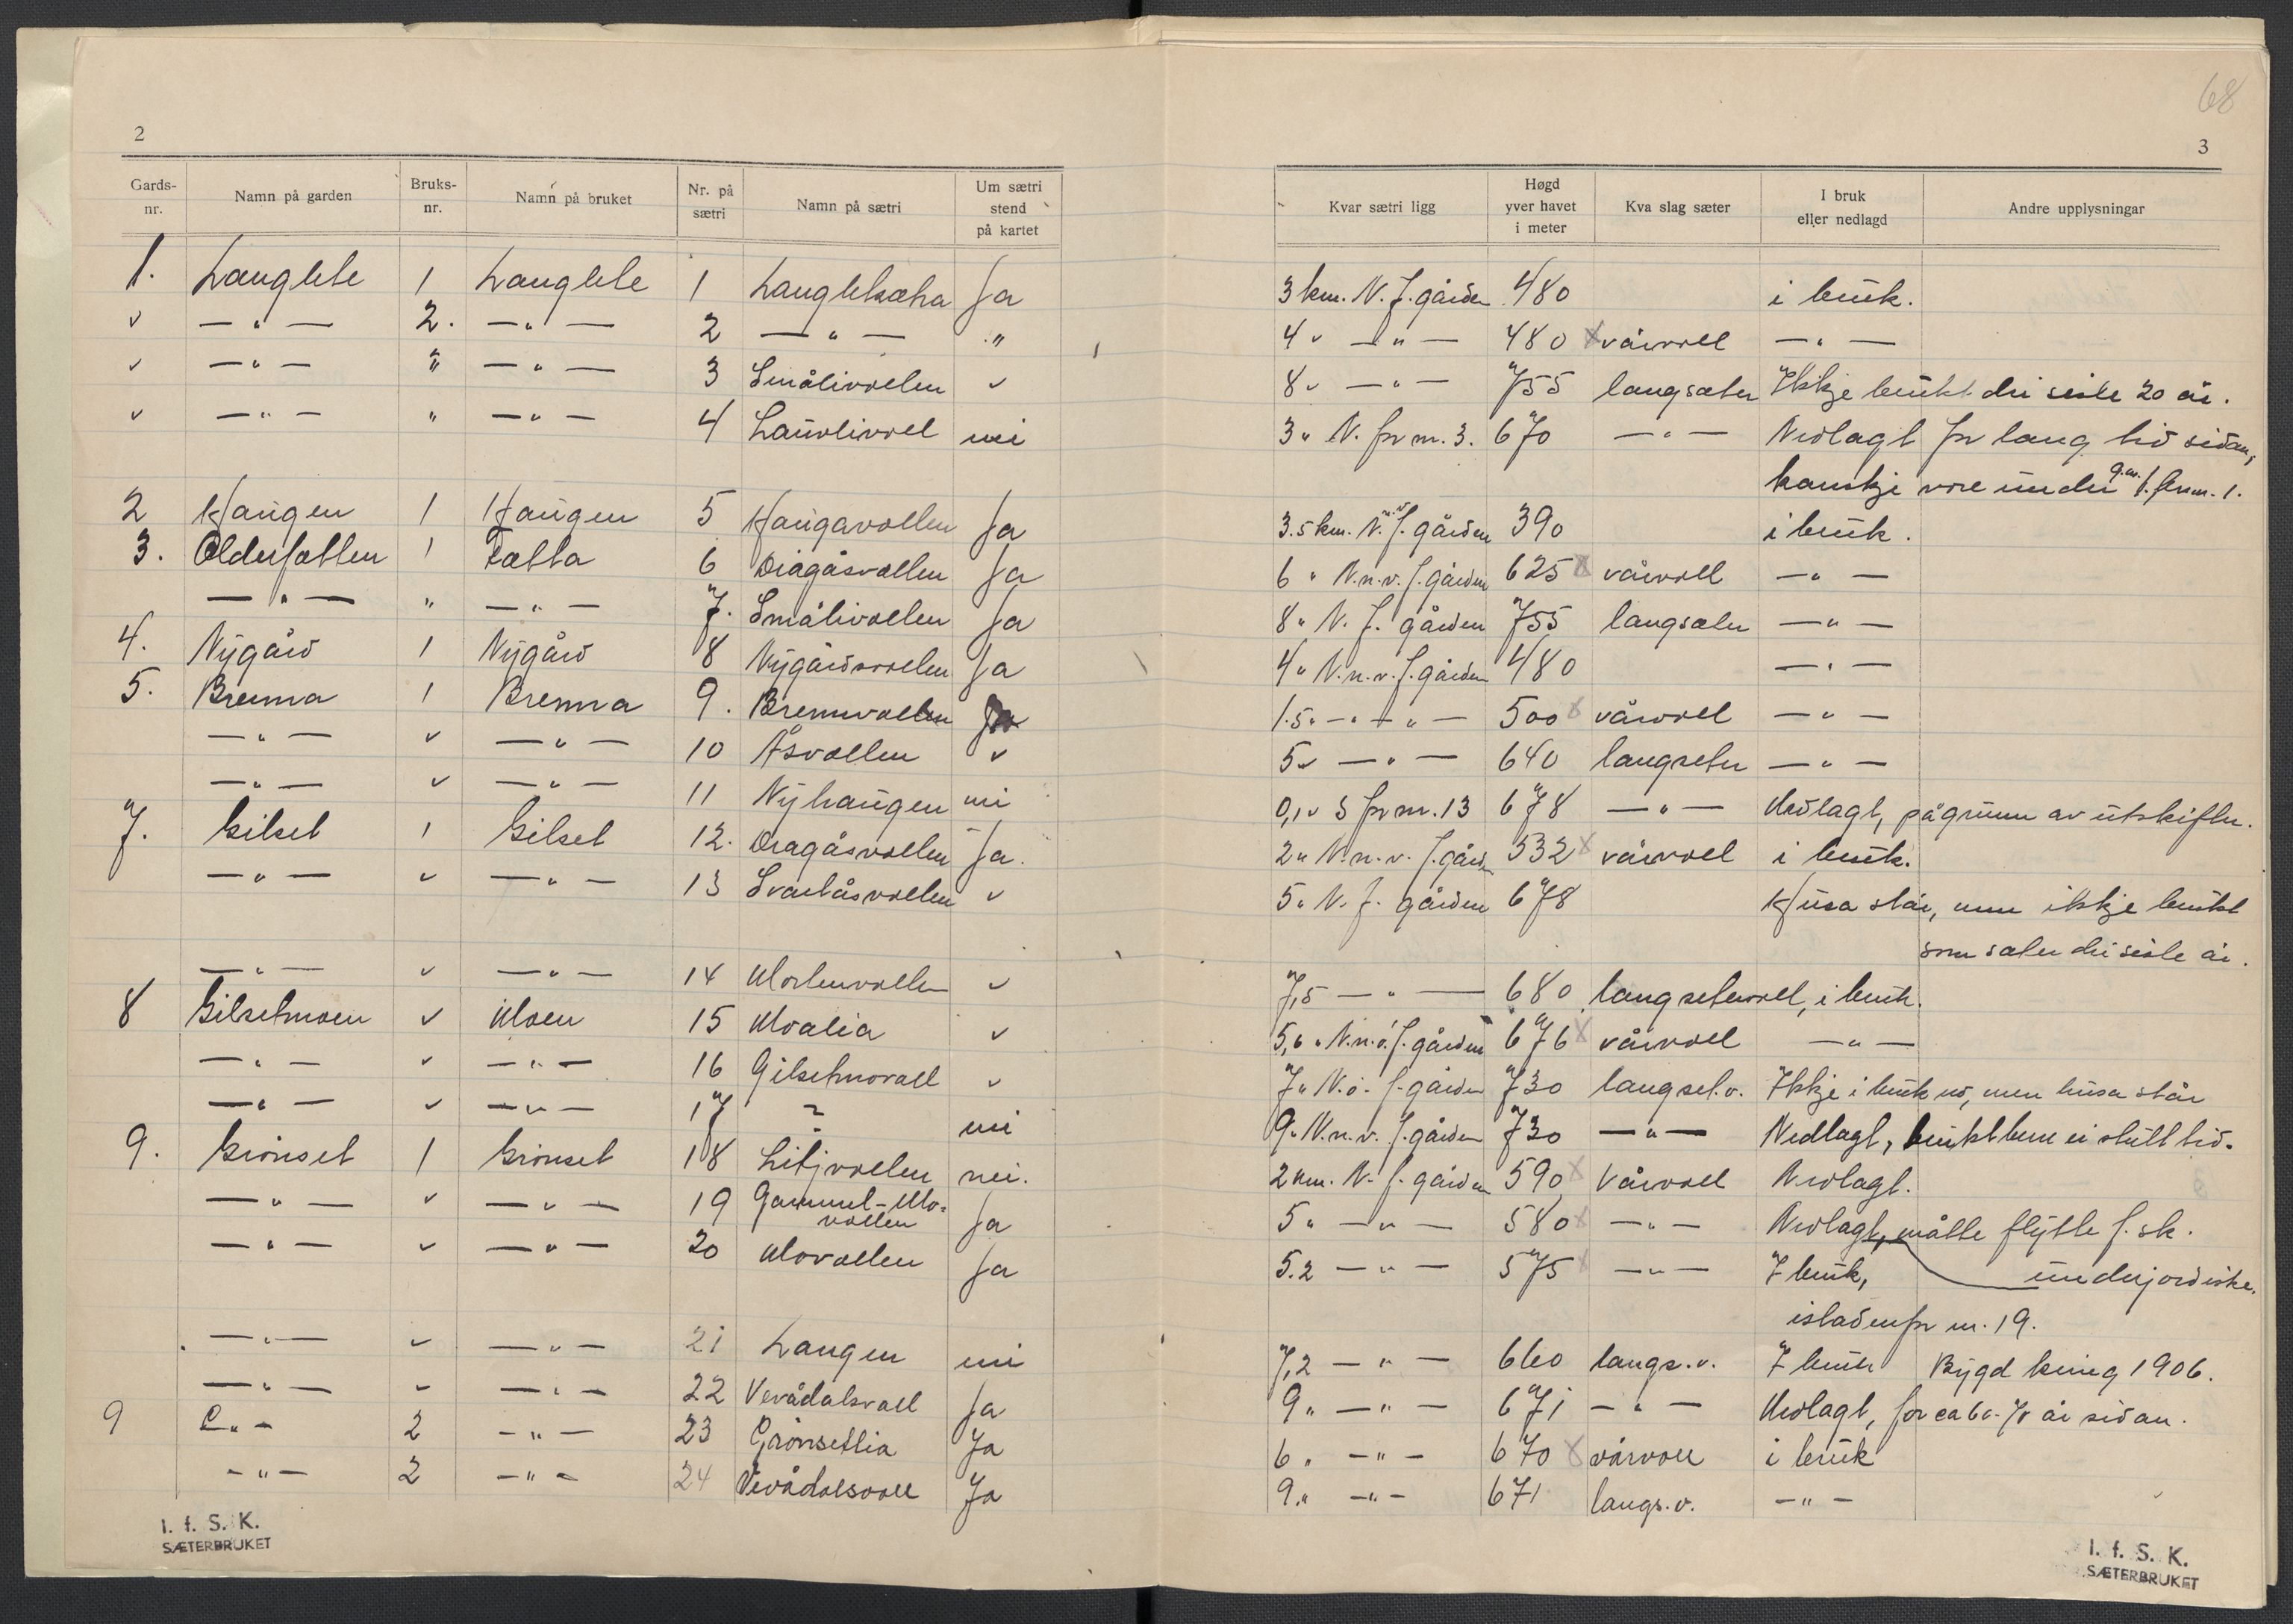 68
2
3
Gards-nr. Namn på garden Bruks-nr. Namn på bruket Nr. på sætri Namn på sætri Um sætri stend på kartet Kvar sætri ligg Høgd yver havet i meter Kva slag sæter I bruk eller nedlagd Andre upplysningar
1. Langlete 1 Langlete 1 Ja 3 km. N. f. gården 480 i bruk.
" — " — 2. — " — 2 — " — " 4 " — " — 480 x vårvoll — " —
" — " — " — " — 3 Smålivollen " 8 " — " — 755 langsæter Ikkje brukt dei siste 20 år.
" — " — " — " — 4 Laurlivoll nei 3 " N. for nr. 3. 670 — " — Nedlagt for lang tid sidan,
kanskje vore under g.nr. 1. br.nr. 1.
2 Haugen 1 Haugen 5 Haugavollen Ja 3.5 km. N.n.v. f. gården 390 i bruk.
3. 1 6 Dragåsvollen Ja 6 " N.n.v. f. gården 625 x vårvoll — " —
— " — " — " — 7. Smålivollen Ja 8 " N. f. gården 755 langsæter — " —
4. Nygård 1 Nygård 8 Nygårdsvollen Ja 4 " N.n.v. f. gården 480 — " —
5. Brenna 1 Brenna 9. Brennvollen Ja 1.5 " — " — " — 500 x vårvoll — " —
— " — " — " — 10 Åsvollen " 5 " — " — 640 langseter — " —
— " — " — " — 11 Nyhaugen nei 0,1 " S for nr. 13 678 — " — Nedlagt, pågrunn av utskiftn.
7. Gilset 1 Gilset 12. Dragåsvollen Ja. 2 " N.n.v. f. gården 532 x vårvoll i bruk.
— " — " — " — 13 Svartåsvollen " 5 " N. f. gården 678 Husa står, men ikkje brukt
som sæter dei siste år.
— " — " — " — 14 " 7,5 — " — 680 langsetervoll, i bruk.
8 Gilsetmoen " Moen 15 Moalia " 5,6 " N.n.ø. f. gården 676 x vårvoll — " —
— " — " — " — 16 Gilsetmovoll " 7 " N.ø. f. gården 730 langset.v. Ikkje i bruk no, men husa står
— " — " — " — 17 ? nei 9 " N.n.v. f. gården 730 — " — Nedlagt, brukt bere ei stutt tid.
9. Grønset 1 Grønset 18 Litjvollen nei. 2 km. N. f. gården 590 x Vårvoll Nedlagt.
— " — " — " — 19 Gammel-Mo-
vollen Ja 5 " — " — 580 x — " — Nedlagt, måtte flytte f. sk.
underjordiske.
— " — " — " — 20 Movollen Ja 5.2 — " — 575 x — " — I bruk,
istaden for nr. 19.
— " — " — " — 21 Langen nei 7,2 — " — 660 langs.v. I bruk Bygd kring 1906.
— " — " — " — 22 Vevådalsvoll Ja 9 " — " — 671 — " — Nedlagt, for ca 60-70 år sidan.
9 — " — 2 — " — 23 Grønsetlia Ja 6 " — " — 670 x vårvoll i bruk
— " — 2 — " — 24 Vevådalsvoll Ja 9 " — " — 671 langs.v. — " —
I. f. S. K.
SÆTERBRUKET
I. f. S. K.
SÆTERBRUKET